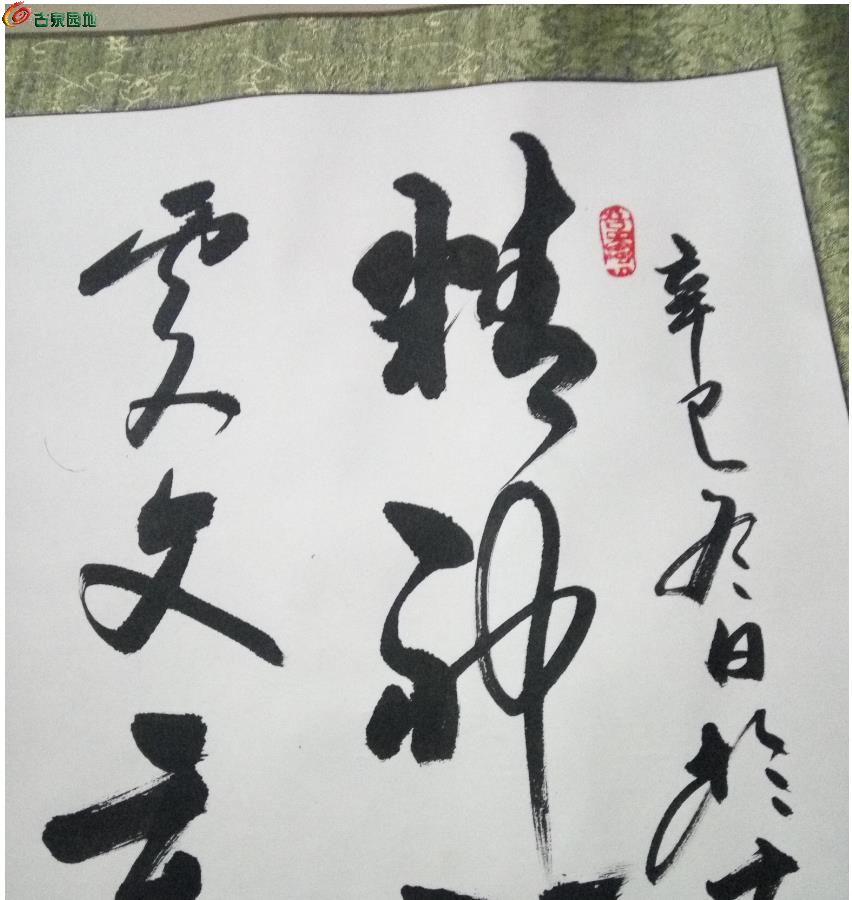 古泉园地
辛巳冬日於
精神
處文